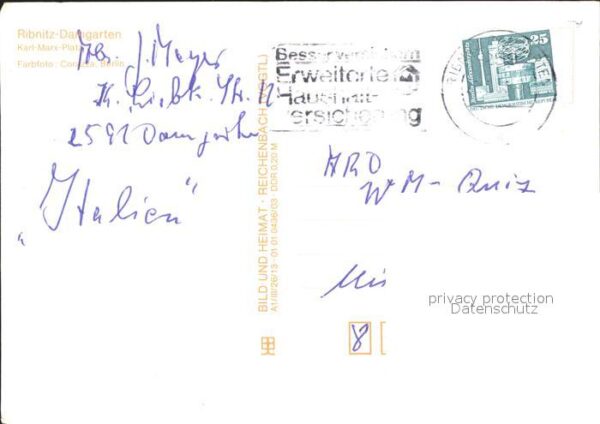 Ribnitz-Damgarten
Karl-Marx-Platz
Farbfoto: Berlin
Abs. J. Meyer
K. Liebk. Str.
2591 Damgarten
"Italien"
BILD UND HEIMAT · REICHENBACH (VOGTL)
A1/III/26/13 · 01 01 0436/03 · DDR 0,20 M
Besser
Erweiterte
Haushalt-
versicherung
25
ARD
WM-Quiz
8
privacy protection
Datenschutz